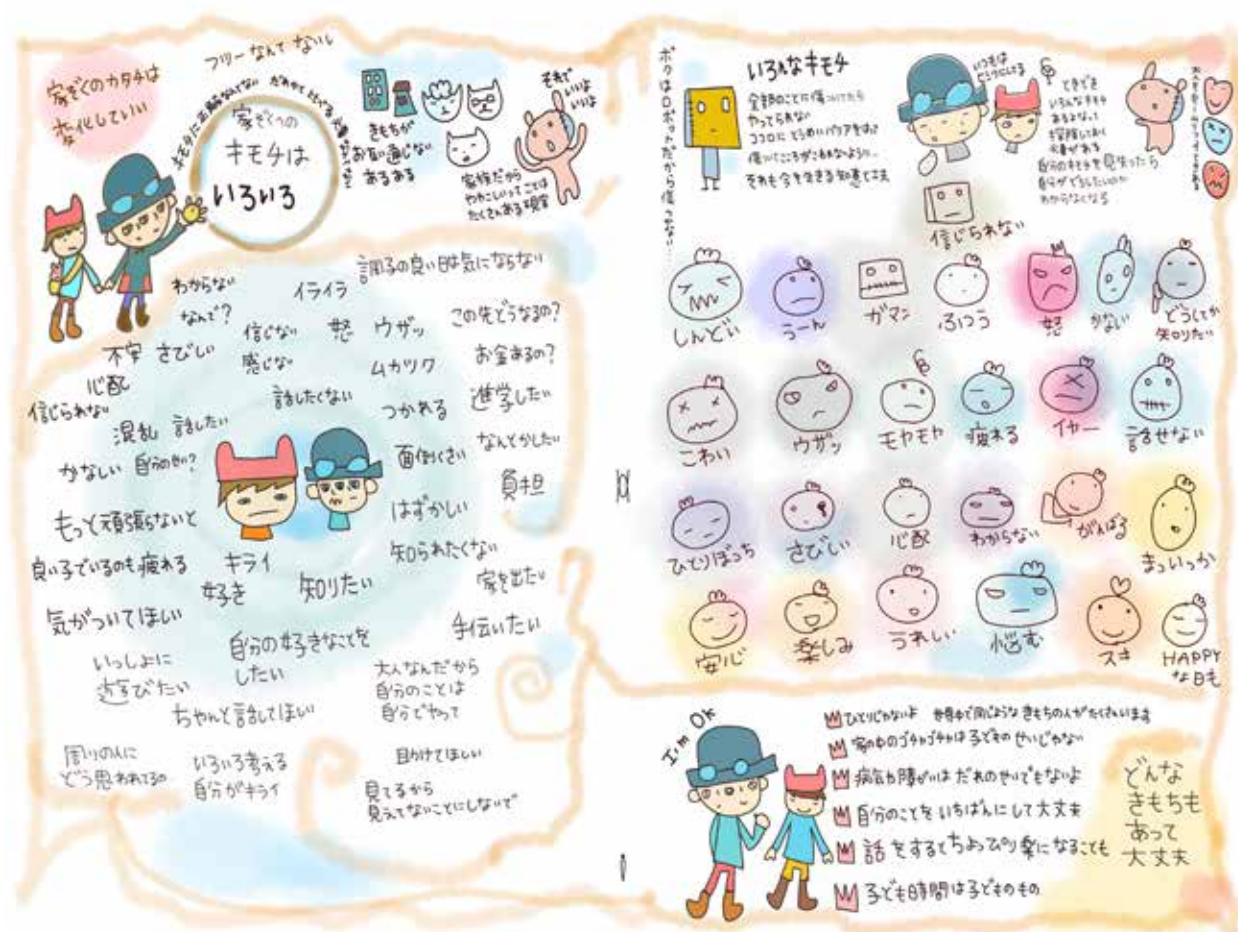 家ぞくのカタチは
変化していい
フリーなんて ないし
家ぞくへの
キモチは
いろいろ
きもちが
お互い通じない
あるある
それで
いいよ
いいよ
家族だから
ややこしいってことは
たくさんある現実
わからない
なんで?
イライラ
調子の良い日は気にならない
不安 さびしい
信じない
感じない
怒
ウザッ
この先どうなるの?
心配
ムカツク
お金あるの?
信じられない
話したくない
つかれる
進学したい
混乱
話したい
かなしい
自分のせい?
面倒くさい
なんとかしたい
負担
もっと頑張らないと
はずかしい
良い子でいるのも疲れる
キライ
好き
知りたい
知られたくない
家を出たい
気がついてほしい
自分の好きなことを
したい
手伝いたい
いっしょに
遊びたい
大人なんだから
自分のことは
自分でやって
ちゃんと話してほしい
周りの人に
どう思われてるの
いろいろ考える
自分がキライ
助けてほしい
見てるから
見えてないことにしないで
ボクはロボットだから傷つかない…
いろんなキモチ
全部のことに傷ついてたら
やってられない
ココロに とうめいバリアをはって
傷ついてこころがこわれないように…
それも今を生きる知恵と工夫
ときどき
いろんなキモチ
あるよなって
探険しておく
必要がある
自分のキモチを見失ったら
自分がどうしたいのか
わからなくなる
信じられない
しんどい
うーん
ガマン
ふつう
怒
かなしい
どうしても
知りたい
こわい
ウザッ
モヤモヤ
疲れる
イヤー
話せない
ひとりぼっち
さびしい
心配
わからない
がんばる
まぁいっか
安心
楽しみ
うれしい
悩む
スキ
HAPPY
な日も
I'm OK
ひとりじゃないよ 世界中で同じような きもちの人がたくさんいます
家の中のゴチャゴチャは子どものせいじゃない
病気や障がいは だれのせいでもないよ
自分のことを いちばんにして大丈夫
話をするとちょっぴり楽になることも
子ども時間は子どものもの
どんな
きもちも
あって
大丈夫